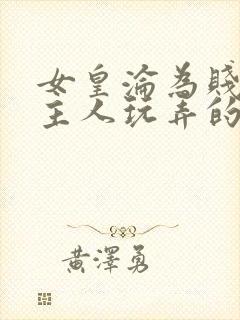 女皇淪為賤
主人玩弄的
黃澤勇